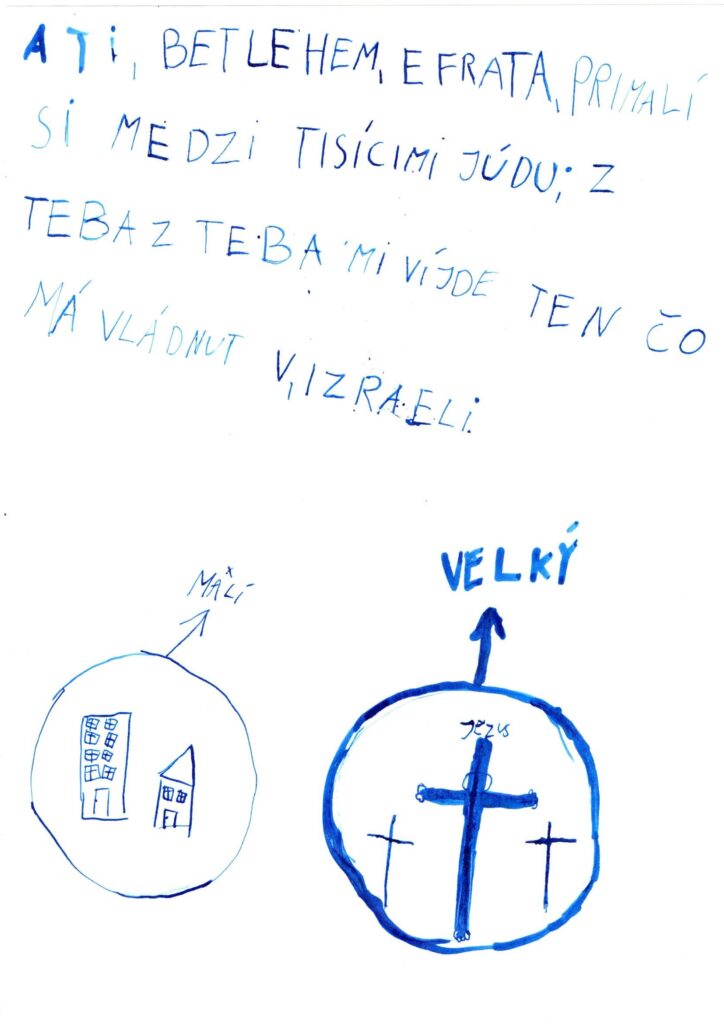 A TI, BETLEHEM, EFRATA, PRIMALÍ
SI MEDZI TISÍCIMI JÚDU; Z
TEBA Z TEBA MI VÍJDE TEN ČO
MÁ VLÁDNUT V, IZRAELI.
MALÍ
VELKÝ
Ježus